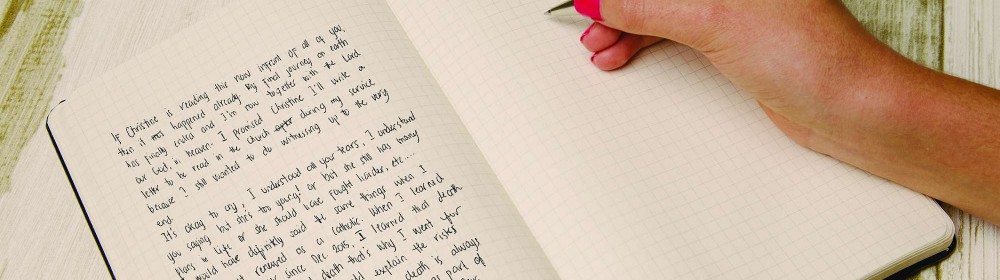 If Christine is reading this now infront of all of you,
then it most happened already. My final journey on earth
has finally ended and I'm now together with the Lord
our God, in heaven. I promised Christine I'll write a
letter to be read in the church after during my service
because I still wanted to do witnessing up to the very
end.
It's okay to cry, I understood all your tears, I understand
you saying but she's too young! or but she still has many
plans in life or she should have fought harder, etc....
would have definitely said the same things when I
renewed as a Catholic. When I learned
since Dec 2015, I learned that death
death that's why I went for
could explain the risks
death is always
as part of